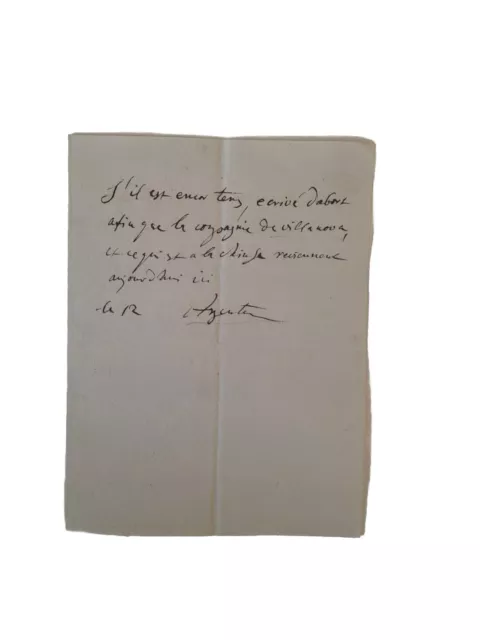 S'il est encor tems, ecrivé d'abort
afin que la compagnie de villanova,
et ce qui est a la reviennent
aujourd'hui ici
le 12